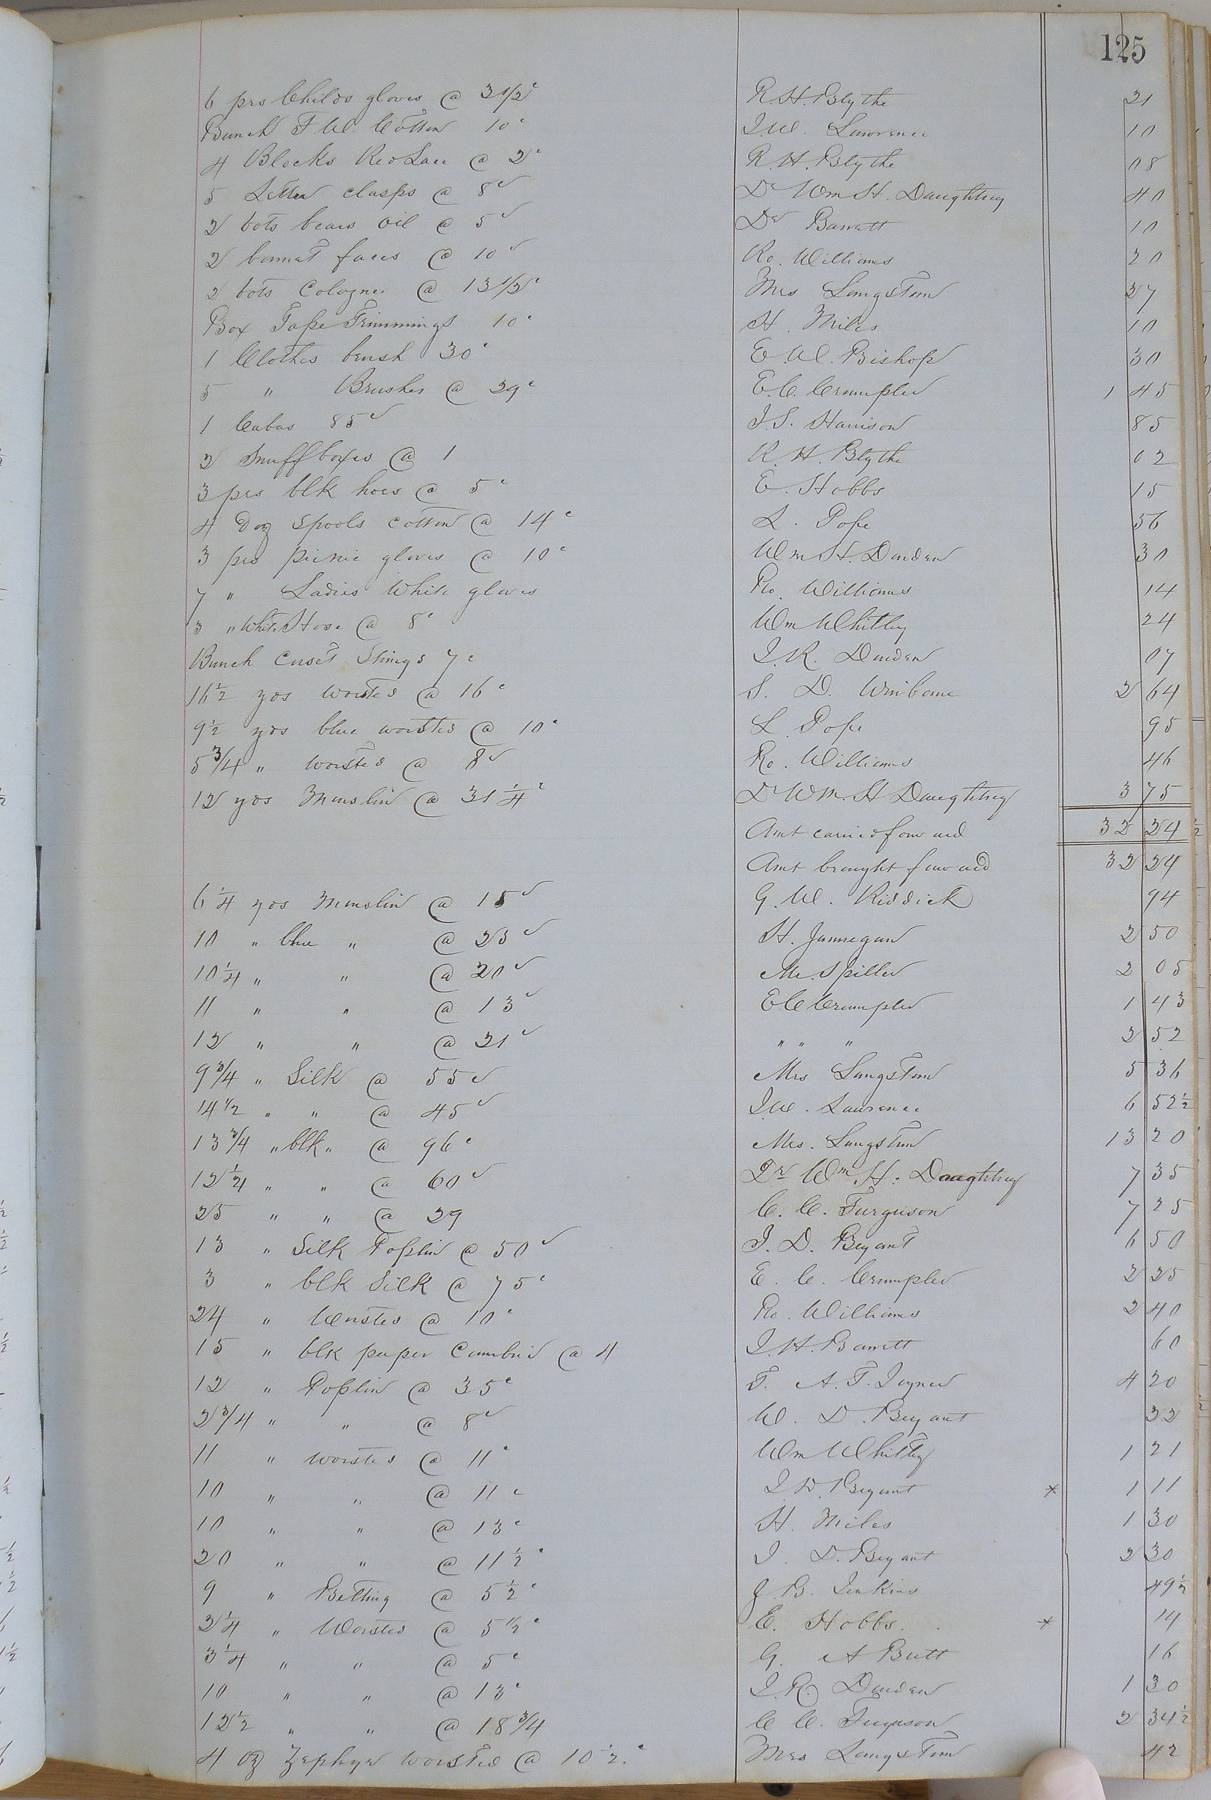 125
6 prs Childs gloves @ 3 1/2c R. H. Blythe 21
Bunch F. W. Cotton 10c J. W. Lawrence 10
4 Blocks Red Lace @ 2c R. H. Blythe 08
5 Letter clasps @ 8c Dr Wm H. Daughtrey 40
2 bots bears oil @ 5c Dr Barrett 10
2 bonnet faces @ 10c Ro. Williams 20
2 bots Cologne @ 13 1/2c Mrs Langston 27
Box Tape Trimmings 10c H. Miles 10
1 Clothes brush 30c E. W. Bishop 30
5 " Brushes @ 29c E. C. Crumpler 1 45
1 Cabas 85c J. S. Harrison 85
2 Snuff boxes @ 1 R. H. Blythe 02
3 prs blk hose @ 5c E. Hobbs 15
4 Doz Spools cotton @ 14c L. Pope 56
3 prs picnic gloves @ 10c Wm H. Darden 30
7 " Ladies White gloves Ro. Williams 14
3 " White Hose @ 8c Wm Whitley 24
Bunch Strings 7c J. R. Darden 07
16 1/2 yds worsted @ 16c S. D. Winborne 2 64
9 1/2 yds blue worsted @ 10c L Pope 95
5 3/4 " worsted @ 8c Ro. Williams 46
12 yds Muslin @ 31 1/4c Dr Wm. H Daughtrey 3 75
Amt carried forward 32 24 1/2
Amt brought forward 32 24
6 1/4 yds Muslin @ 15c G. W. Riddick 94
10 " blue " @ 25c H. Junnegan 2 50
10 1/4 " " @ 20c Mr. Spiller 2 05
11 " " @ 13c E C Crumpler 1 43
12 " " @ 21c " " " 2 52
9 3/4 " Silk @ 55c Mrs Langston 5 36
14 1/2 " " @ 45c J. W. Lawrence 6 52 1/2
13 3/4 " blk " @ 96c Mrs. Langston 13 20
12 1/4 " " @ 60c Dr Wm H. Daughtrey 7 35
25 " " @ 29 C. C. Furguson 7 25
13 " Silk Poplin @ 50c J. D. Bryant 6 50
3 " blk Silk @ 75c E. C. Crumpler 2 25
24 " Worsted @ 10c Ro. Williams 2 40
15 " blk paper Cambric @ 4 J. H. Barrett 60
12 " Poplin @ 35c T. A. T. Joyner 4 20
2 3/4 " " @ 8c W. D. Bryant 22
11 " worsted @ 11c Wm Whitley 1 21
10 " " @ 11c J D. Bryant * 1 11
10 " " @ 13c H. Miles 1 30
20 " " @ 11 1/2c J. D. Bryant 2 30
9 " Belting @ 5 1/2c J B. Jenkins 49 1/2
2 1/4 " Worsted @ 5 1/2c E. Hobbs. * 14
3 1/4 " " @ 5c G. A Butt 16
10 " " @ 13c J. R. Darden 1 30
12 1/2 " " @ 18 3/4 C C. Furguson 2 34 1/2
4 oz Zephyr worsted @ 10 1/2.c Mrs Langston 42